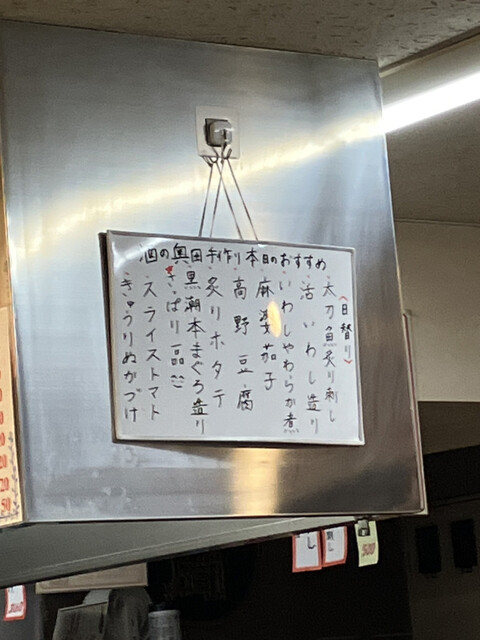 酒の奥田手作り本日のおすすめ
(日替り)
・太刀魚炙り刺し
・活いわし造り
・いわしやわらか煮
・麻婆茄子
・高野豆腐
・炙りホタテ
・黒潮本まぐろ造り
さっぱり一品
・スライストマト
・きゅうりぬかづけ
500